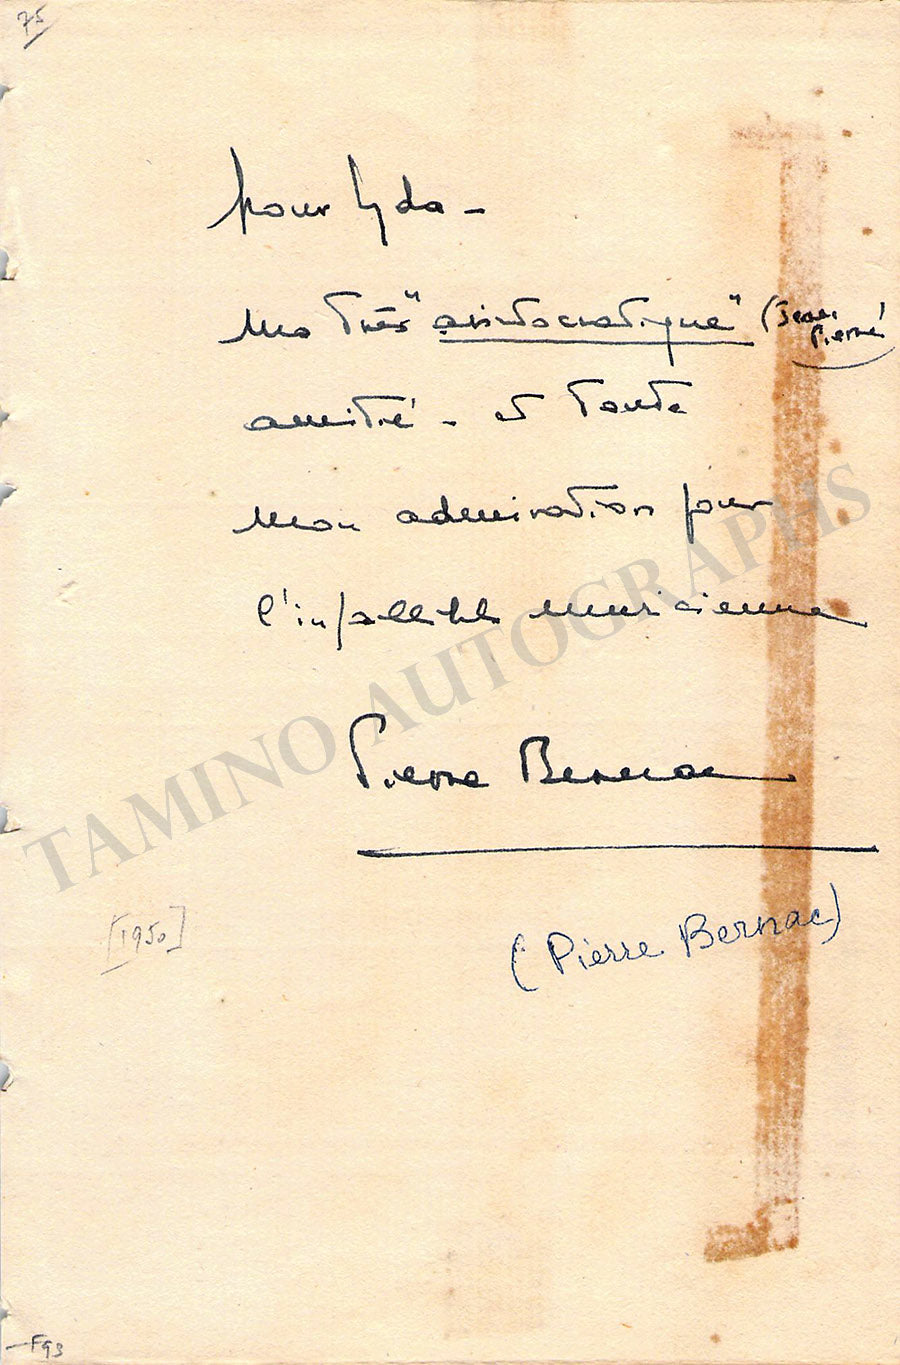 75
pour Lyda -
Ma très "aristocratique" (Jean
Pierné)
amitié - et toute
mon admiration pour
l'infaillible musicienne
Pierre Bernac
(Pierre Bernac)
[1950]
F93
TAMINO AUTOGRAPHS